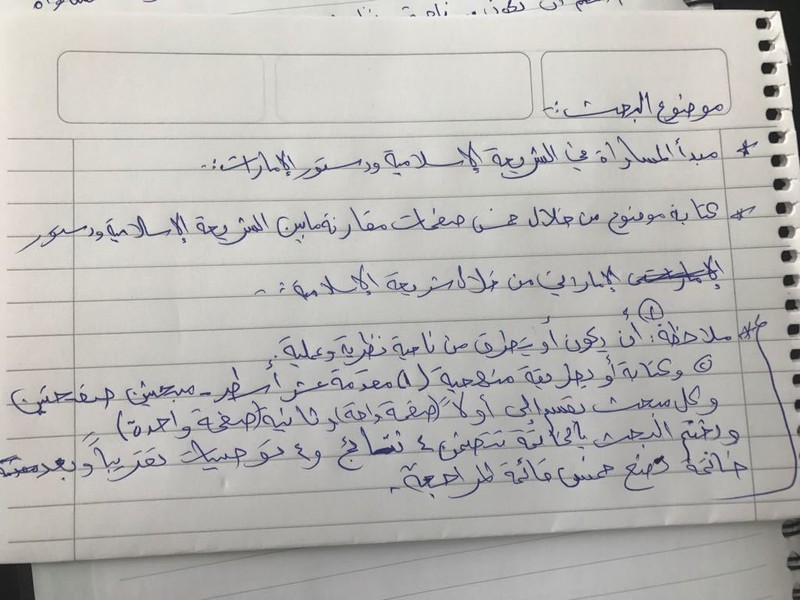 موضوع البحث :-
* مبدأ المساواة في الشريعة الإسلامية ودستور الإمارات :-
* كتابة موضوع من خلال خمس صفحات مقارنة مابين الشريعة الإسلامية ودستور
الإماراتي من خلال شريعة الإسلامية :-
* ملاحظة : ① أن يكون أو يتطرق من ناحية نظرية وعملية .
② وكتابة أو بطريقة منهجية (١) مقدمة عشر أسطر - مبحثين صفحتين
وكل مبحث نقسم الى أولاً (صفحة واحدة) وثانية (صفحة واحدة)
ونختم البحث بالخاتمة تتضمن ٤ نتائج و ٤ توصيات تقريباً وبعد
خاتمة نضع خمس قائمة المراجعة .